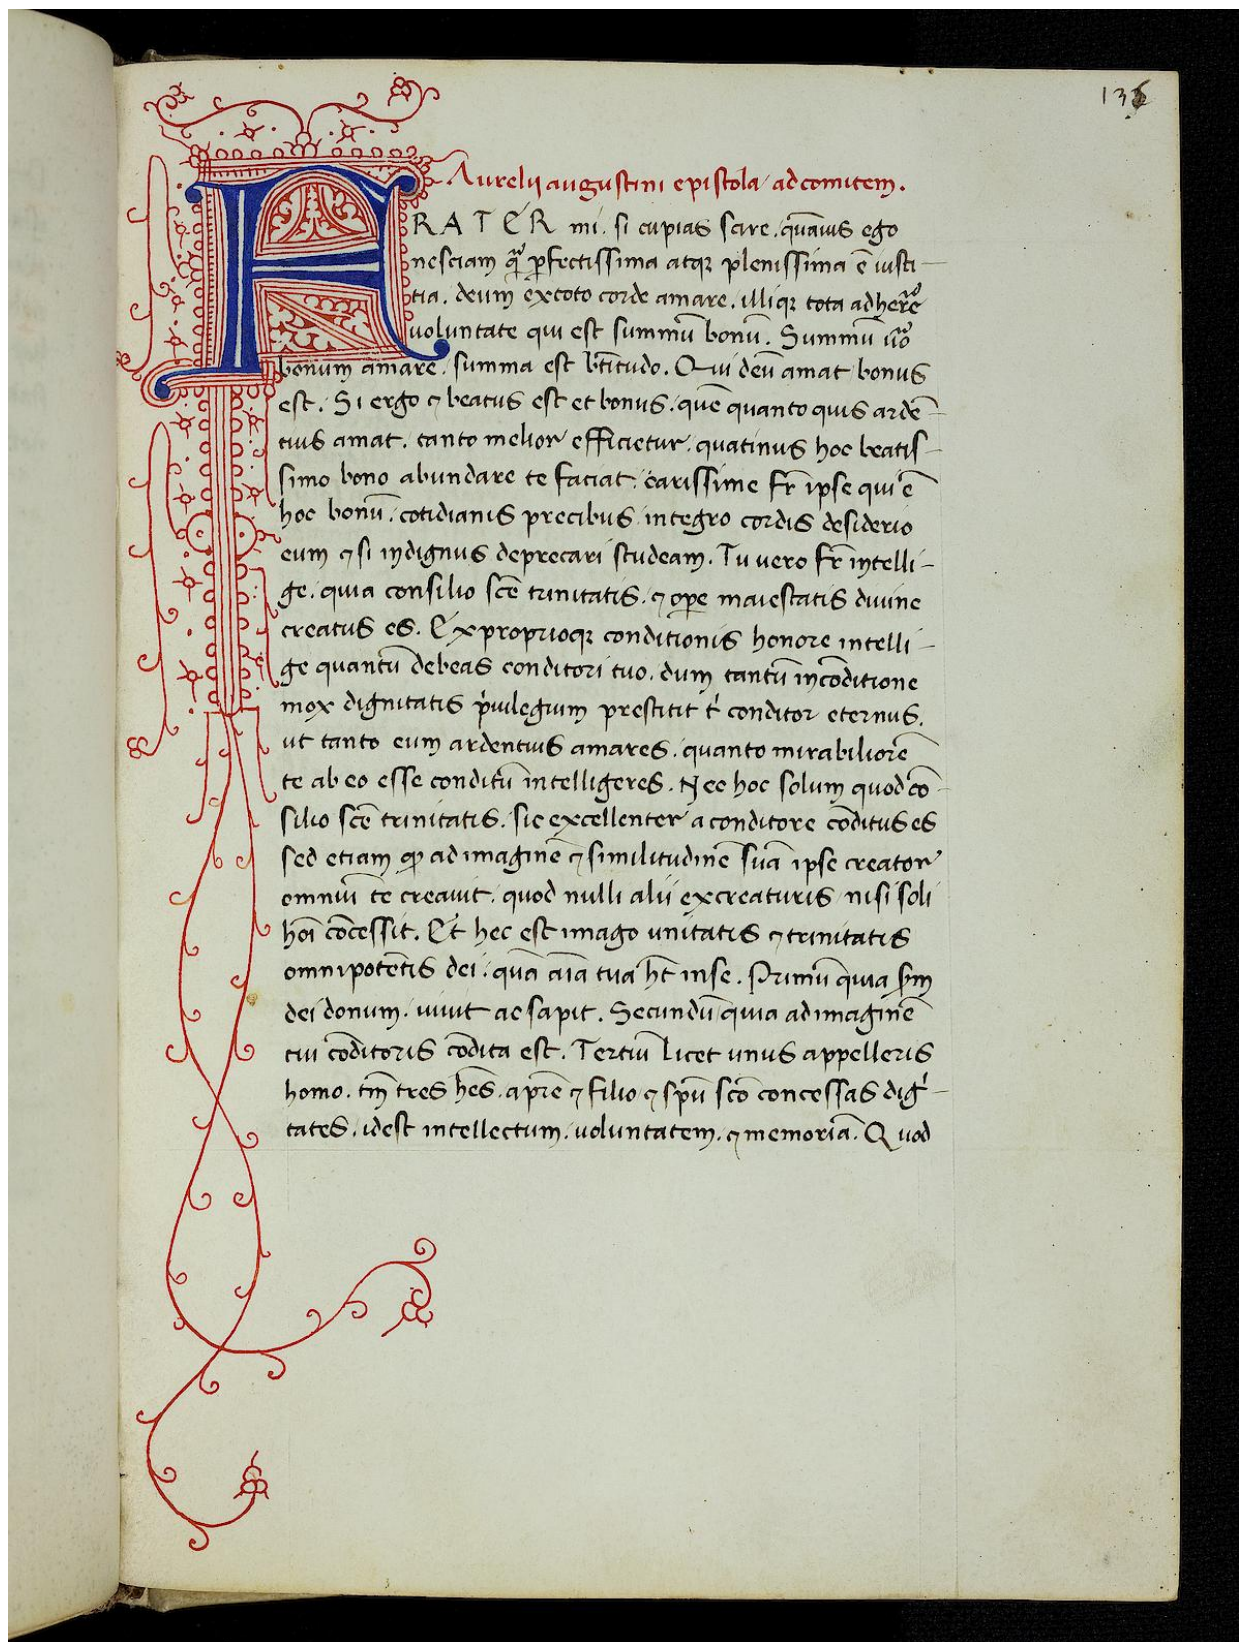 136
Aurelij augustini epistola ad comitem.
FRATER mi. si cupias scire. quāuis ego
nesciam q̄ꝫ ꝑfectissima atqꝫ plenissima ē iusti-
tia. deum ex toto corde amare. illiqꝫ tota adherere
uoluntate qui est summū bonū. Summū uͦ
bonum amare. summa est bt̄itudo. Qui deū amat bonus
est. Si ergo ⁊ beatus est et bonus. quē quanto quis ardē-
tius amat. tanto melior efficietur. quatinus hoc beatis-
simo bono abundare te faciat. carissime fr̄ ipse qui ē
hoc bonū. cotidianis precibus integro cordis desiderio
eum ⁊ si indignus deprecari studeam. Tu uero fr̄ intelli-
ge. quia consilio scē trinitatis. ⁊ oꝑe maiestatis diuine
creatus es. Ex proprioqꝫ conditionis honore intelli-
ge quantū debeas conditori tuo. dum tantū in cōditione
mox dignitatis p̍uilegium prestitit t̍ conditor eternus.
ut tanto eum ardentius amares. quanto mirabiliorē
te ab eo esse conditū intelligeres. Nec hoc solum quod cō-
silio scē trinitatis. sic excellenter a conditore cōditus es
sed etiam ꝙ ad imaginē ⁊ similitudinē suā ipse creator
omniū te creauit. quod nulli alii ex creaturis nisi soli
hoī cōcessit. Et hec est imago unitatis ⁊ trinitatis
omnipotētis dei. quā aīa tua ht̄ in se. Primū quia sm̄
dei donum. uiuit ac sapit. Secundū quia ad imaginē
tui cōditoris cōdita est. Tertiū licet unus appelleris
homo. tm̄ tres hēs. a prē ⁊ filio ⁊ spū scō concessas dig̍-
tates. idest intellectum. uoluntatem. ⁊ memoriā. Quod